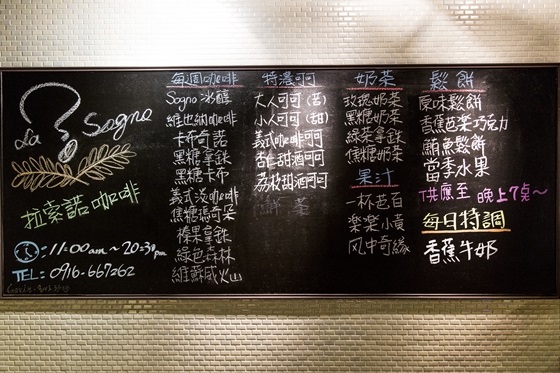 La Sogno
拉索諾咖啡
11:00am～20:30pm
TEL: 0916-667262
每週咖啡
Sogno 冰醇
維也納咖啡
卡布奇諾
黑糖拿鐵
黑糖卡布
義式淡咖啡
焦糖瑪奇朵
榛果拿鐵
綠色森林
維蘇威火山
特濃可可
大人可可(苦)
小人可可(甜)
義式咖啡可可
杏仁甜酒可可
荔枝甜酒可可
鮮茶
奶茶
玫瑰奶茶
黑糖奶茶
綠茶拿鐵
焦糖奶茶
果汁
一杯芭百
楽楽小黃
风中奇緣
鬆餅
原味鬆餅
香蕉芭樂巧克力
鮪魚鬆餅
當季水果
供應至 晚上7点～
每日特調
香蕉牛奶